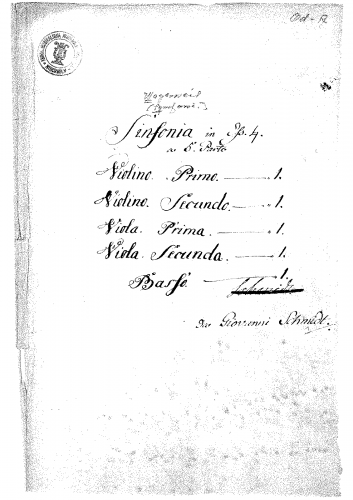 Od - 12
Wagenseil
Sinfonia in Db. 4.
a 5. Parte
Violino. Primo. — 1.
Violino Secundo. — 1.
Viola. Prima. — 1.
Viola. Secunda. — 1.
Basso. — 1.
Schmidt
Dar Giovanni Schmidt.